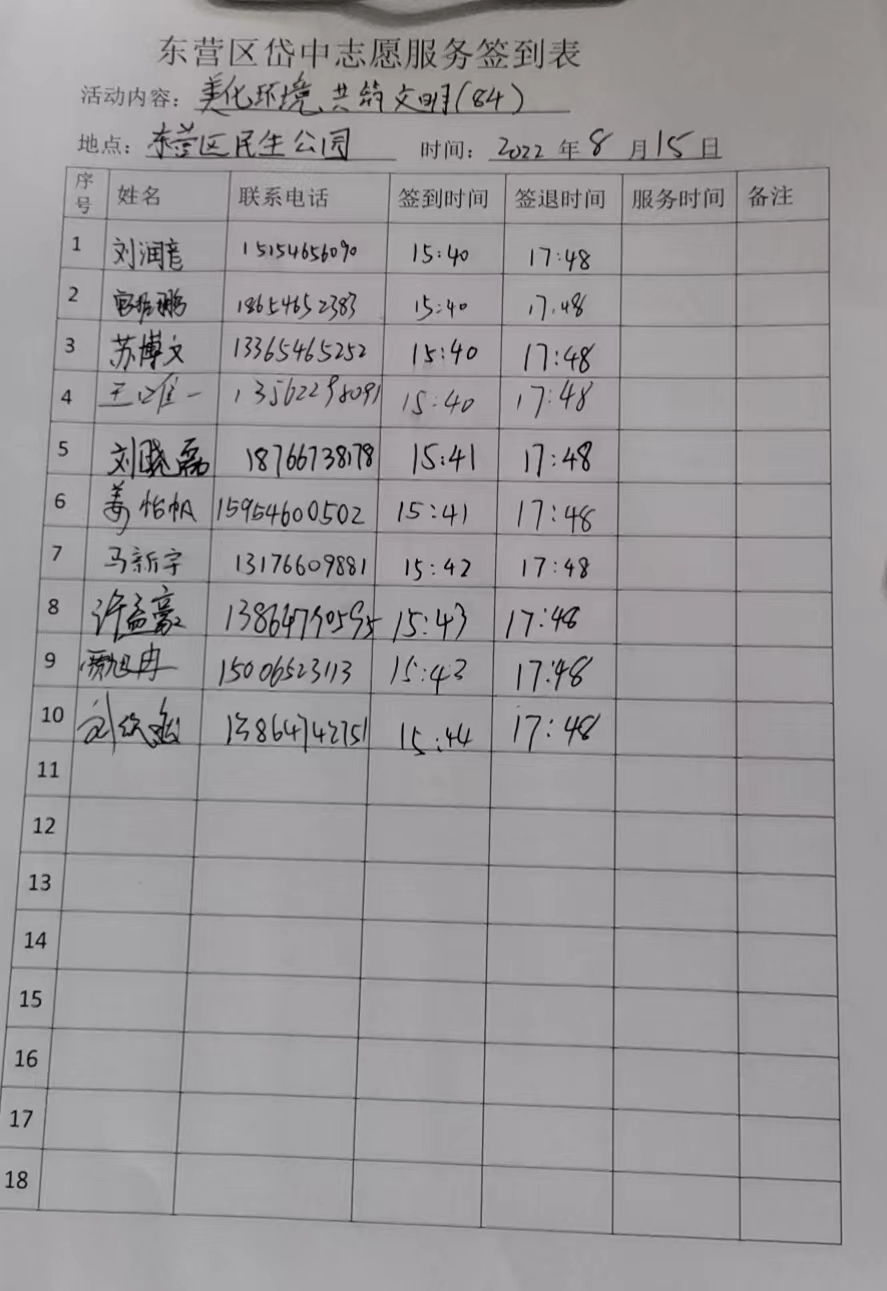 东营区岱中志愿服务签到表
活动内容：美化环境 共筑文明(84)
地点：东营区民生公园 时间：2022年8月15日
序号 姓名 联系电话 签到时间 签退时间 服务时间 备注
1 刘润彦 15154656090 15:40 17:48
2 18654652383 15:40 17:48
3 苏博文 13365465252 15:40 17:48
4 王唯一 13562298091 15:40 17:48
5 刘晓磊 18766738178 15:41 17:48
6 姜怡帆 15954600502 15:41 17:48
7 马新宇 13176609881 15:42 17:48
8 许孟豪 13864790595 15:43 17:48
9 15006523113 15:43 17:48
10 刘 13864742751 15:44 17:48
11
12
13
14
15
16
17
18